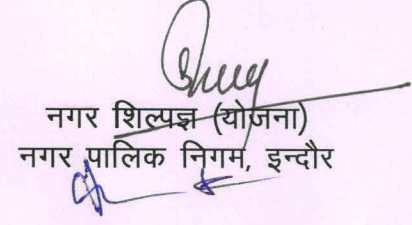 नगर शिल्पज्ञ (योजना)
नगर पालिक निगम, इन्दौर